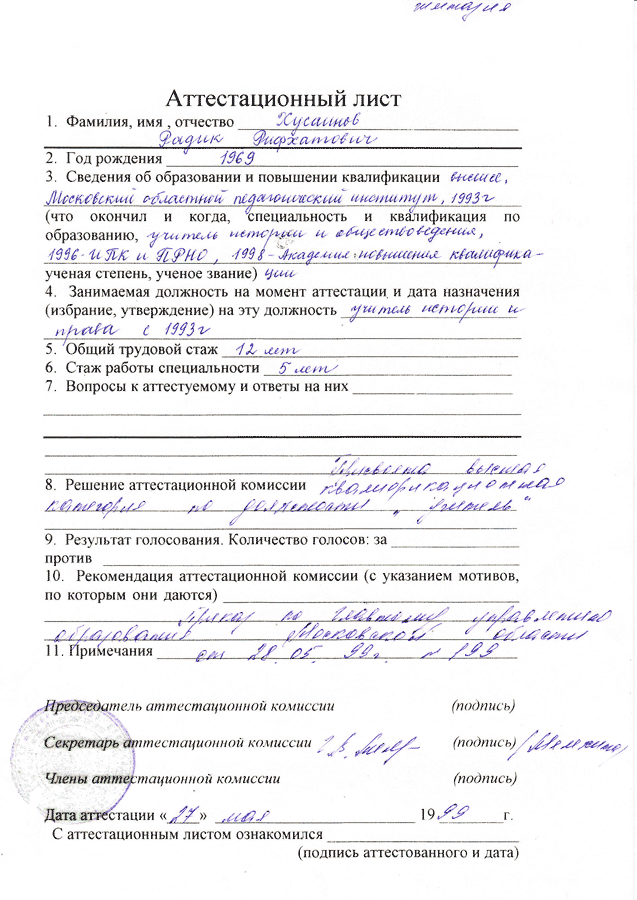 Аттестационный лист
1. Фамилия, имя , отчество Хусаинов
Радик Рифхатович
2. Год рождения 1969
3. Сведения об образовании и повышении квалификации высшее,
Московский областной педагогический институт, 1993г
(что окончил и когда, специальность и квалификация по
образованию, учитель истории и обществоведения,
1996-ИПК и ПРНО, 1998-Академия повышения квалифика-
ученая степень, ученое звание) ции
4. Занимаемая должность на момент аттестации и дата назначения
(избрание, утверждение) на эту должность учитель истории и
права с 1993г
5. Общий трудовой стаж 12 лет
6. Стаж работы специальности 5 лет
7. Вопросы к аттестуемому и ответы на них
Присвоена высшая
8. Решение аттестационной комиссии квалификационная
категория по должности "учитель"
9. Результат голосования. Количество голосов: за
против
10. Рекомендация аттестационной комиссии (с указанием мотивов,
по которым они даются)
Приказ по Главному управлению
образования Московской области
11. Примечания от 28.05.99г. № 199
Председатель аттестационной комиссии (подпись)
Секретарь аттестационной комиссии (подпись)
Члены аттестационной комиссии (подпись)
Дата аттестации « 27 » мая 1999 г.
С аттестационным листом ознакомился
(подпись аттестованного и дата)